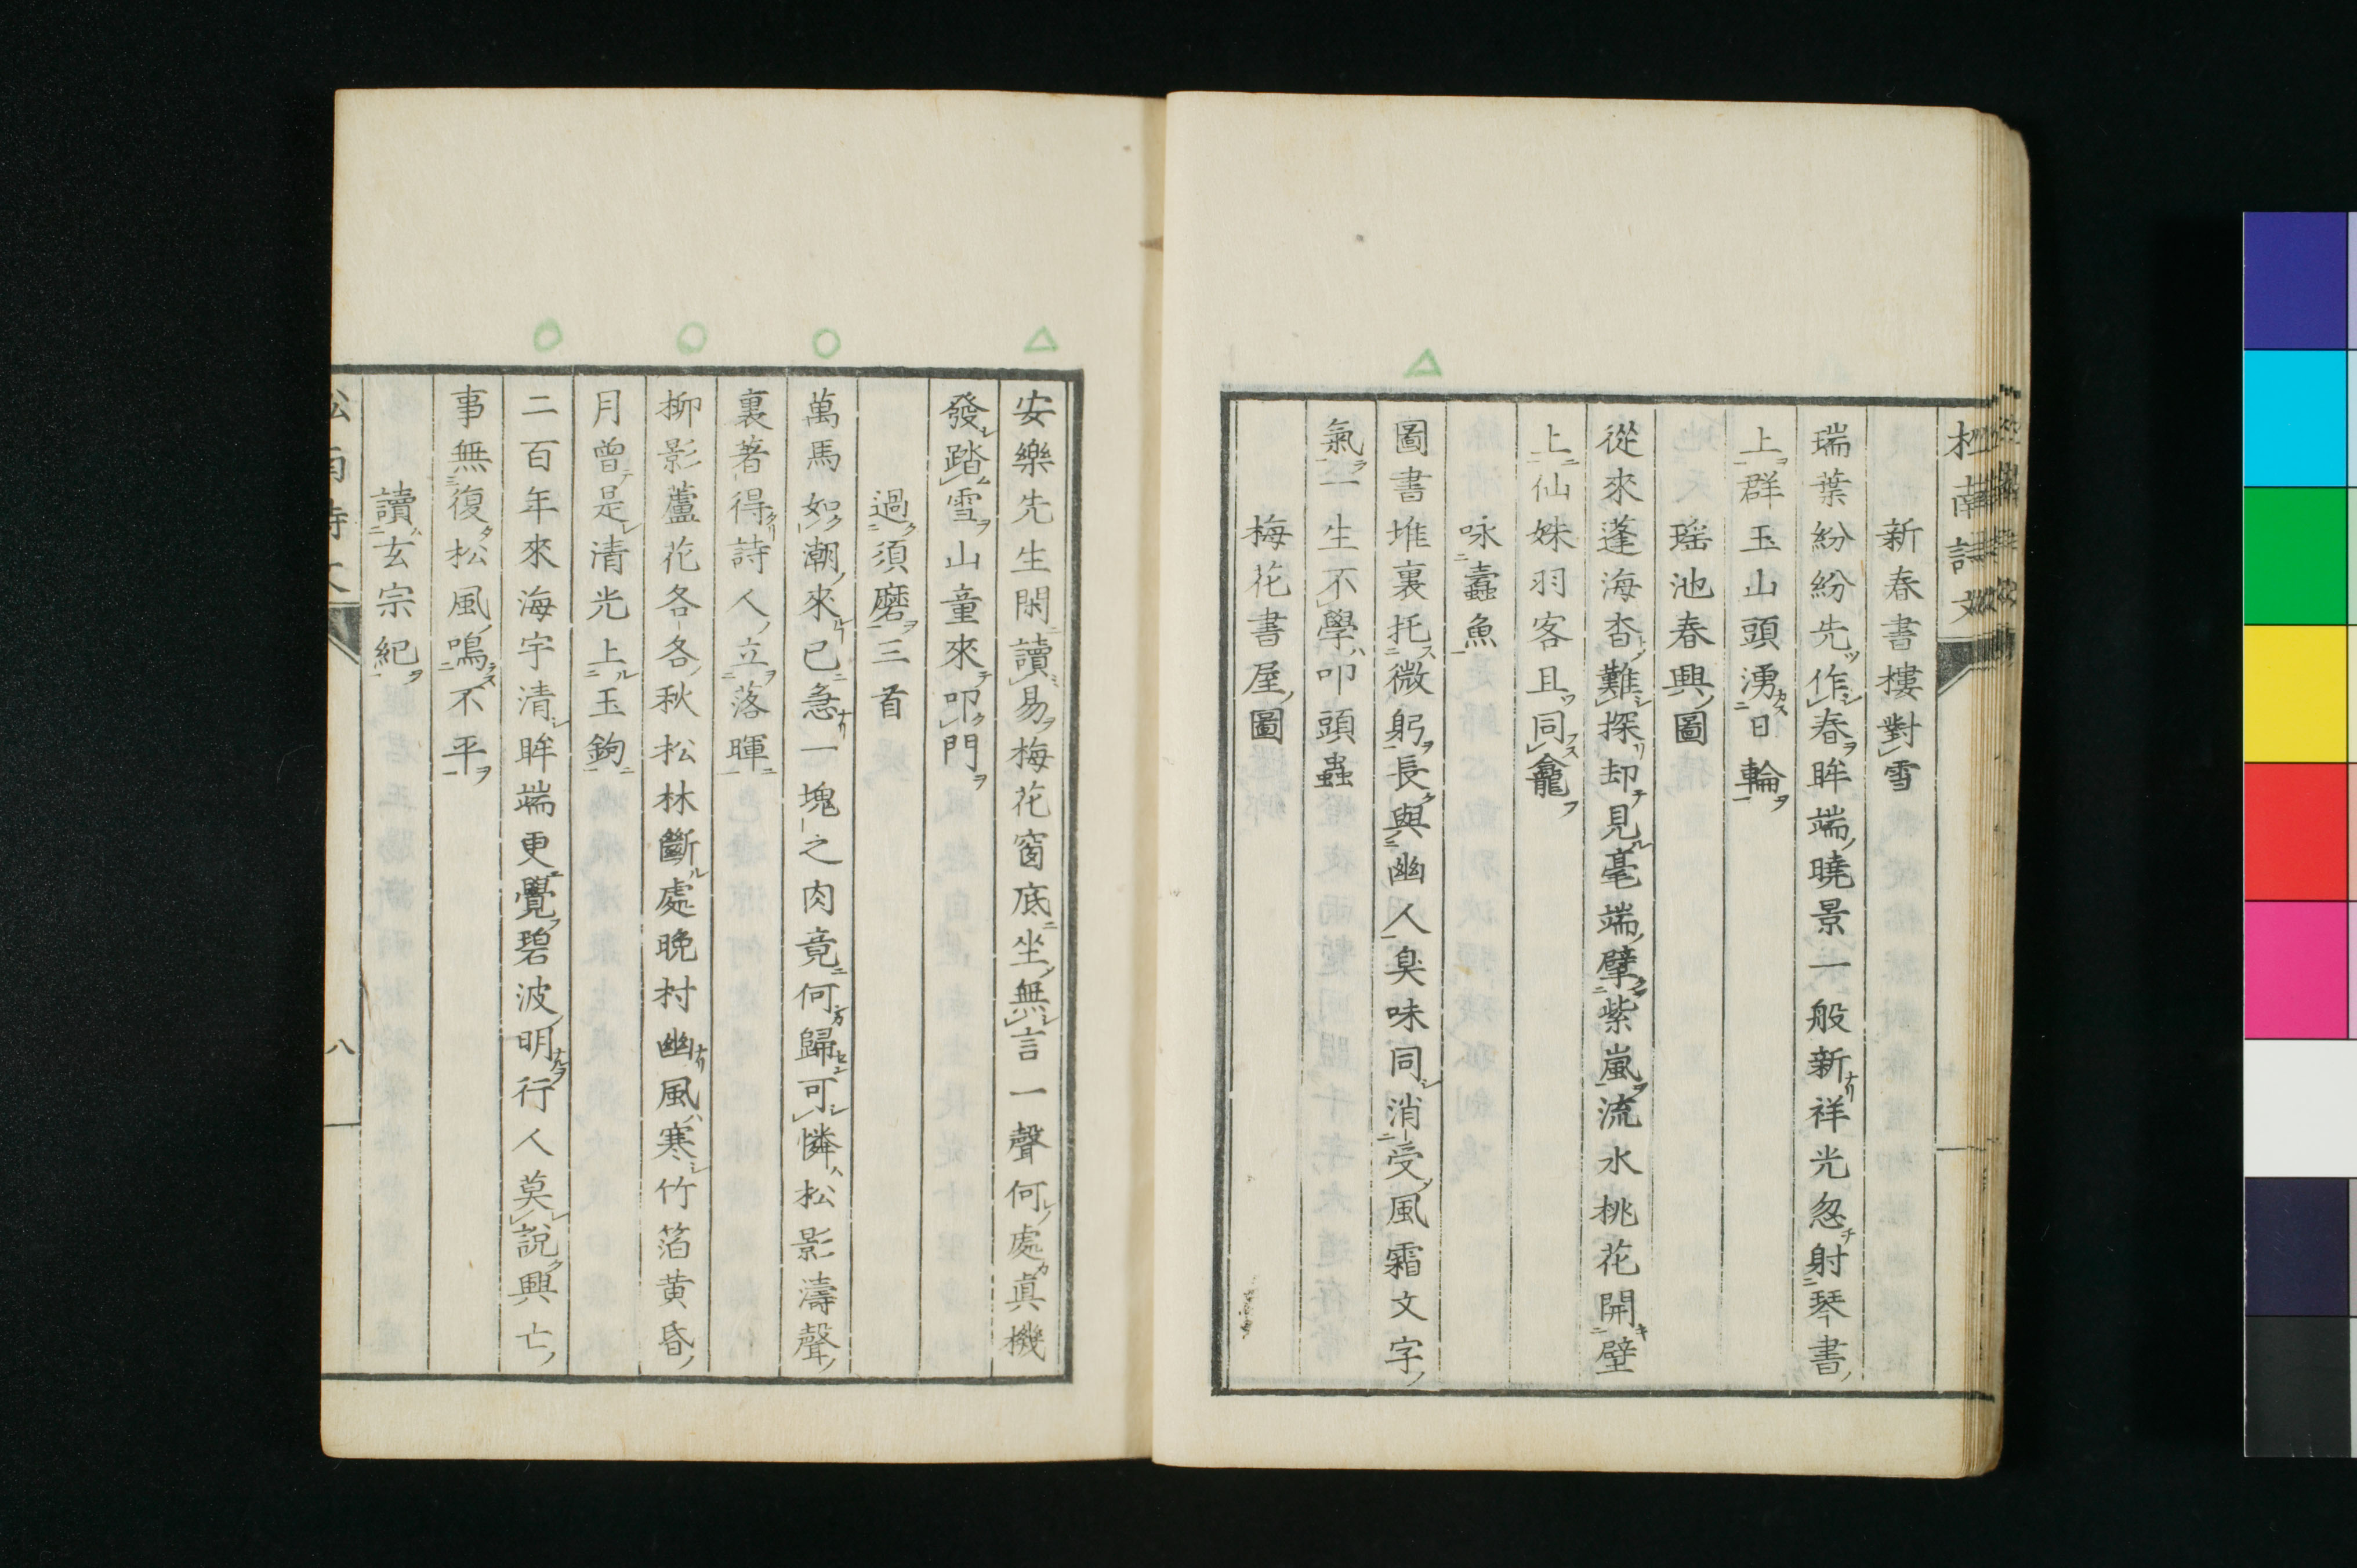 新春書樓對雪
瑞葉紛紛先作春眸端曉景一般新祥光忽射琴書
上群玉山頭湧日輪
瑶池春興圖
從來蓬海杳難探却見毫端擘紫嵐流水桃花開壁
上仙姝羽客且同龕
咏蠧魚
圖書堆裏托微躬長與幽人臭味同消受風霜文字
氣一生不學叩頭蟲
梅花書屋圖
安樂先生閑讀易梅花窗底坐無言一聲何處眞機
發踏雪山童來叩門
過須磨三首
萬馬如潮來已急一塊之肉竟何歸可憐松影濤聲
裏著得詩人立落暉
柳影蘆花各各秋松林斷處晚村幽風寒竹箔黄昏
月曾是清光上玉鉤
二百年來海宇清眸端更覺碧波明行人莫說興亡
事無復松風鳴不平
讀玄宗紀
八